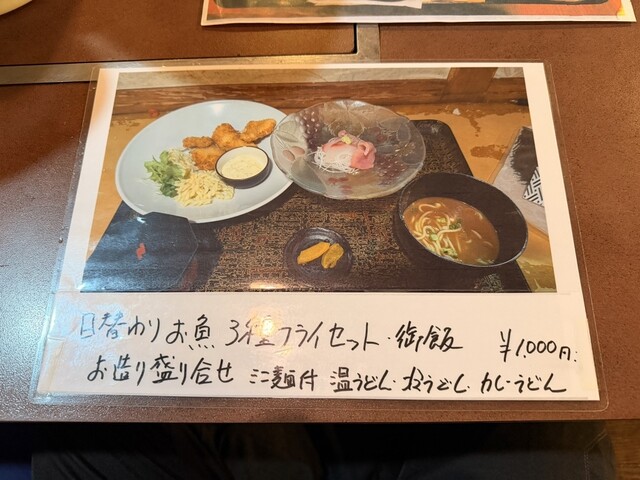 日替わりお魚 3種フライセット・御飯 ¥1,000円
お造り盛り合せ ミニ麺付 温うどん・冷うどん・カレーうどん